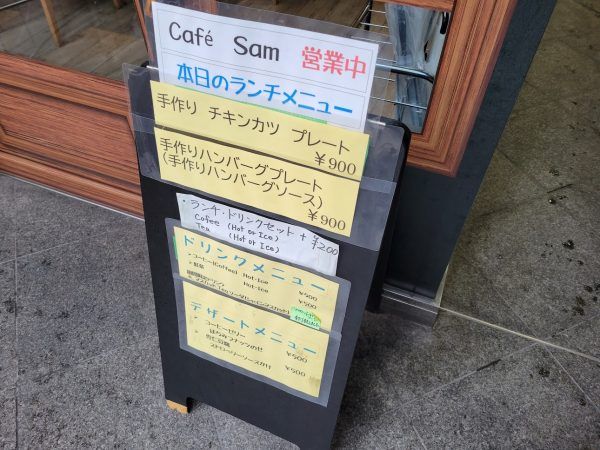 Café Sam 営業中
本日のランチメニュー
手作り チキンカツ プレート
¥900
手作りハンバーグプレート
(手作りハンバーグソース)
¥900
・ランチ・ドリンクセット + ¥200
Cofee (Hot or Ice)
Tea (Hot or Ice)
ドリンクメニュー
・コーヒー(Coffee) Hot・Ice ¥500
・紅茶 Hot・Ice ¥500
デザートメニュー
・コーヒーゼリー ¥500
はちみつナッツのせ
・杏仁豆腐 ¥500
ストロベリーソースがけ